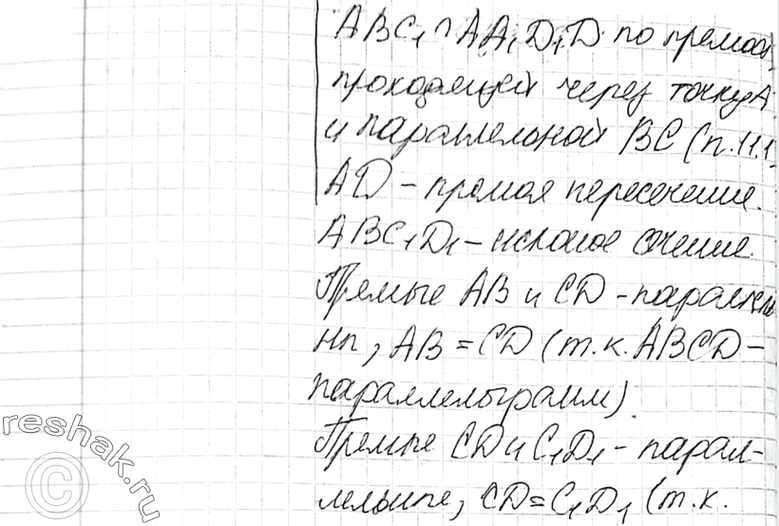 ABC₁ ∩ AA₁D₁D по прямой,
проходящей через точку A
и параллельной BC (п.11.1,
AD – прямая пересечения.
ABC₁D₁ – искомое сечение.
Прямые AB и CD – параллель
ны, AB = CD (т.к. ABCD –
параллелограмм)
Прямые CD и C₁D₁ – парал-
лельные, CD = C₁D₁ (т.к.
reshak.ru
©